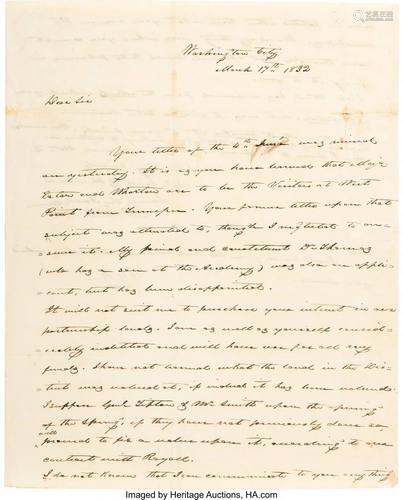 Washington City
March 17th 1832
Dear Sir
Your letter of the 4th Inst was received
on yesterday. It is as you have learned that Majr
Eaton and Morton are to be the Visitors at West
Point from Tennessee. Your former letter upon that
subject was attended to, though I neglected to an-
swer it. My friend and constituent Dr Thomas
(who has a son at the Academy) was also an appli-
cant, but has been disappointed.
It will not suit me to purchase your interest in our
partnership lands. I am as well as yourself consid-
erably indebted and will have use for all my
funds. I have not learned what the land in the Dis-
trict was valued at, if indeed it has been valued.
I suppose Genl Tipton & Mr Smith upon the opening
of the Spring, if they have not previously done so,
will proceed to fix a value upon it, according to our
contract with Royall.
I do not know that I can communicate to you any thing
Imaged by Heritage Auctions, HA.com